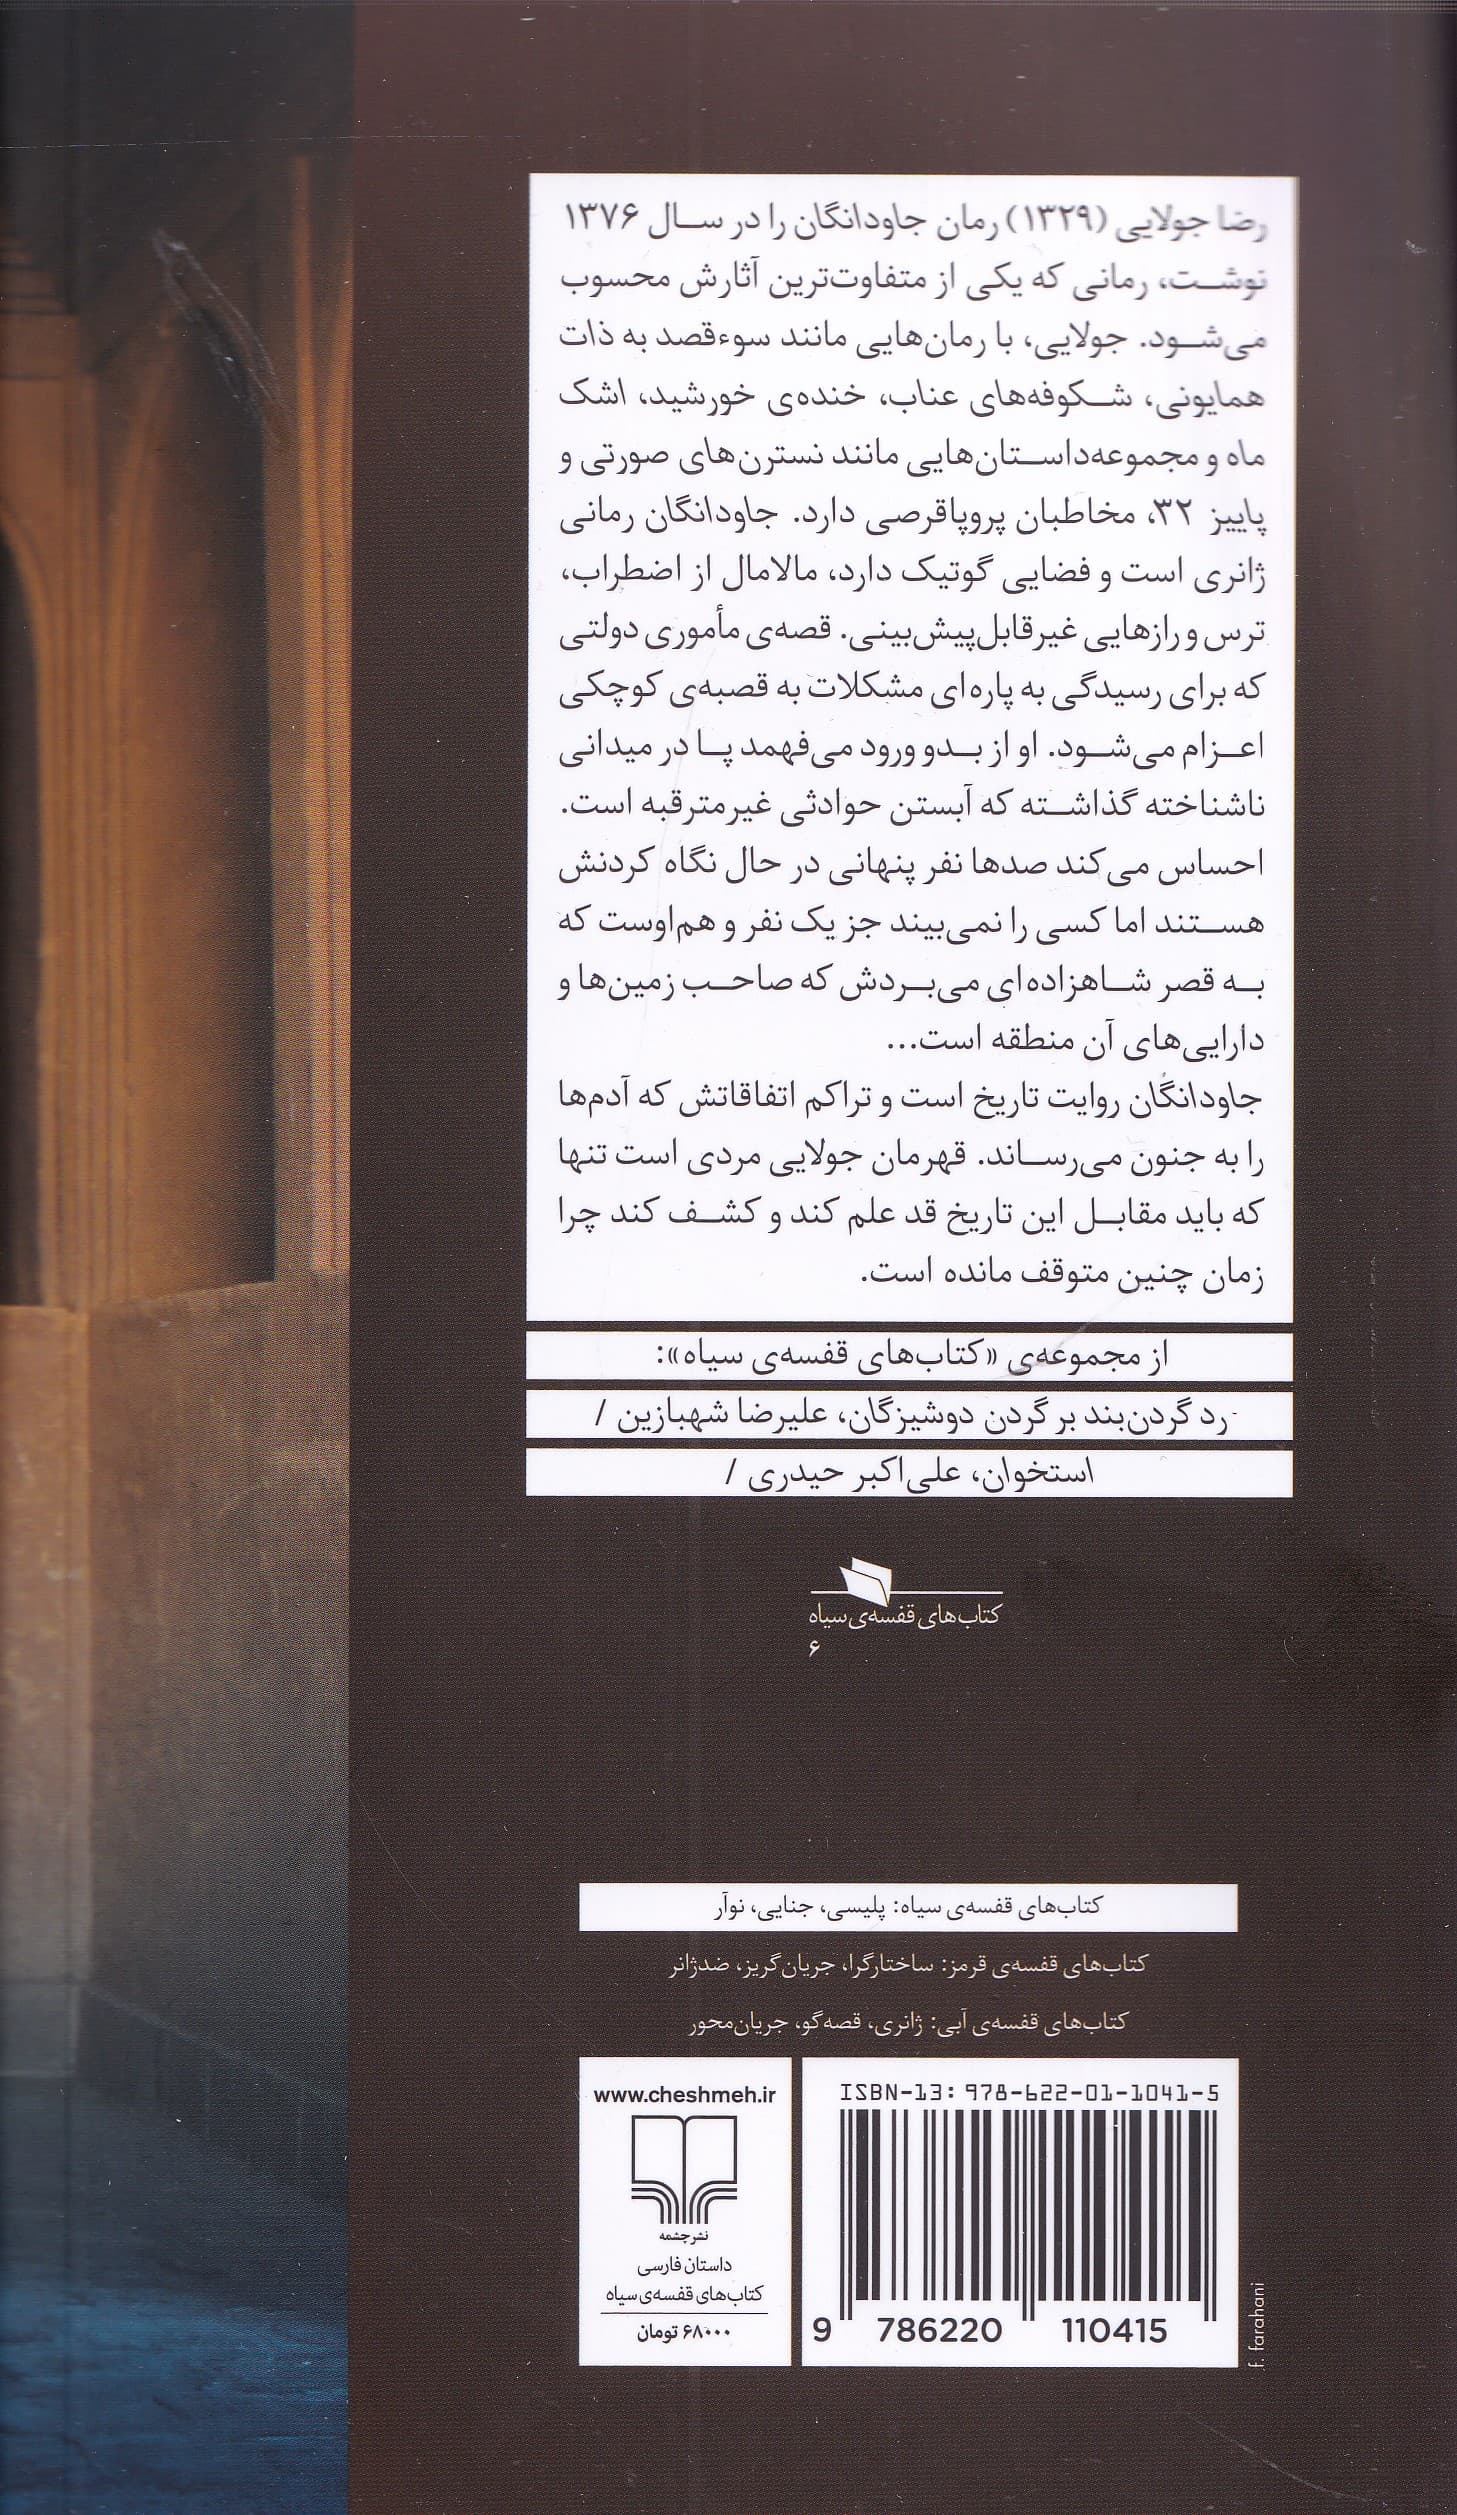 رضا جولایی (۱۳۲۹) رمان جاودانگان را در سال ۱۳۷۶
نوشت، رمانی که یکی از متفاوت‌ترین آثارش محسوب
می‌شود. جولایی، با رمان‌هایی مانند سوءقصد به ذات
همایونی، شکوفه‌های عناب، خنده‌ی خورشید، اشک
ماه و مجموعه‌داستان‌هایی مانند نسترن‌های صورتی و
پاییز ۳۲، مخاطبان پروپاقرصی دارد. جاودانگان رمانی
ژانری است و فضایی گوتیک دارد، مالامال از اضطراب،
ترس و رازهایی غیرقابل‌پیش‌بینی. قصه‌ی مأموری دولتی
که برای رسیدگی به پاره‌ای مشکلات به قصبه‌ی کوچکی
اعزام می‌شود. او از بدو ورود می‌فهمد پا در میدانی
ناشناخته گذاشته که آبستن حوادثی غیرمترقبه است.
احساس می‌کند صدها نفر پنهانی در حال نگاه کردنش
هستند اما کسی را نمی‌بیند جز یک نفر و هم‌اوست که
به قصر شاهزاده‌ای می‌بردش که صاحب زمین‌ها و
دارایی‌های آن منطقه است...
جاودانگان روایت تاریخ است و تراکم اتفاقاتش که آدم‌ها
را به جنون می‌رساند. قهرمان جولایی مردی است تنها
که باید مقابل این تاریخ قد علم کند و کشف کند چرا
زمان چنین متوقف مانده است.
از مجموعه‌ی «کتاب‌های قفسه‌ی سیاه»:
رد گردن‌بند بر گردن دوشیزگان، علیرضا شهبازین /
استخوان، علی‌اکبر حیدری /
کتاب‌های قفسه‌ی سیاه
۶
کتاب‌های قفسه‌ی سیاه: پلیسی، جنایی، نوآر
کتاب‌های قفسه‌ی قرمز: ساختارگرا، جریان‌گریز، ضدژانر
کتاب‌های قفسه‌ی آبی: ژانری، قصه‌گو، جریان‌محور
ISBN-13: 978-622-01-1041-5
9 786220 110415
f. farahani
www.cheshmeh.ir
نشرچشمه
داستان فارسی
کتاب‌های قفسه‌ی سیاه
۶۸۰۰۰ تومان